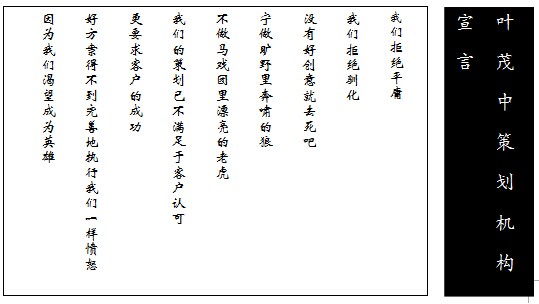 叶茂中策划机构
宣言
我们拒绝平庸
我们拒绝驯化
没有好创意就去死吧
宁做旷野里奔啸的狼
不做马戏团里漂亮的老虎
我们的策划已不满足于客户认可
更要求客户的成功
好方案得不到完善地执行我们一样愤怒
因为我们渴望成为英雄